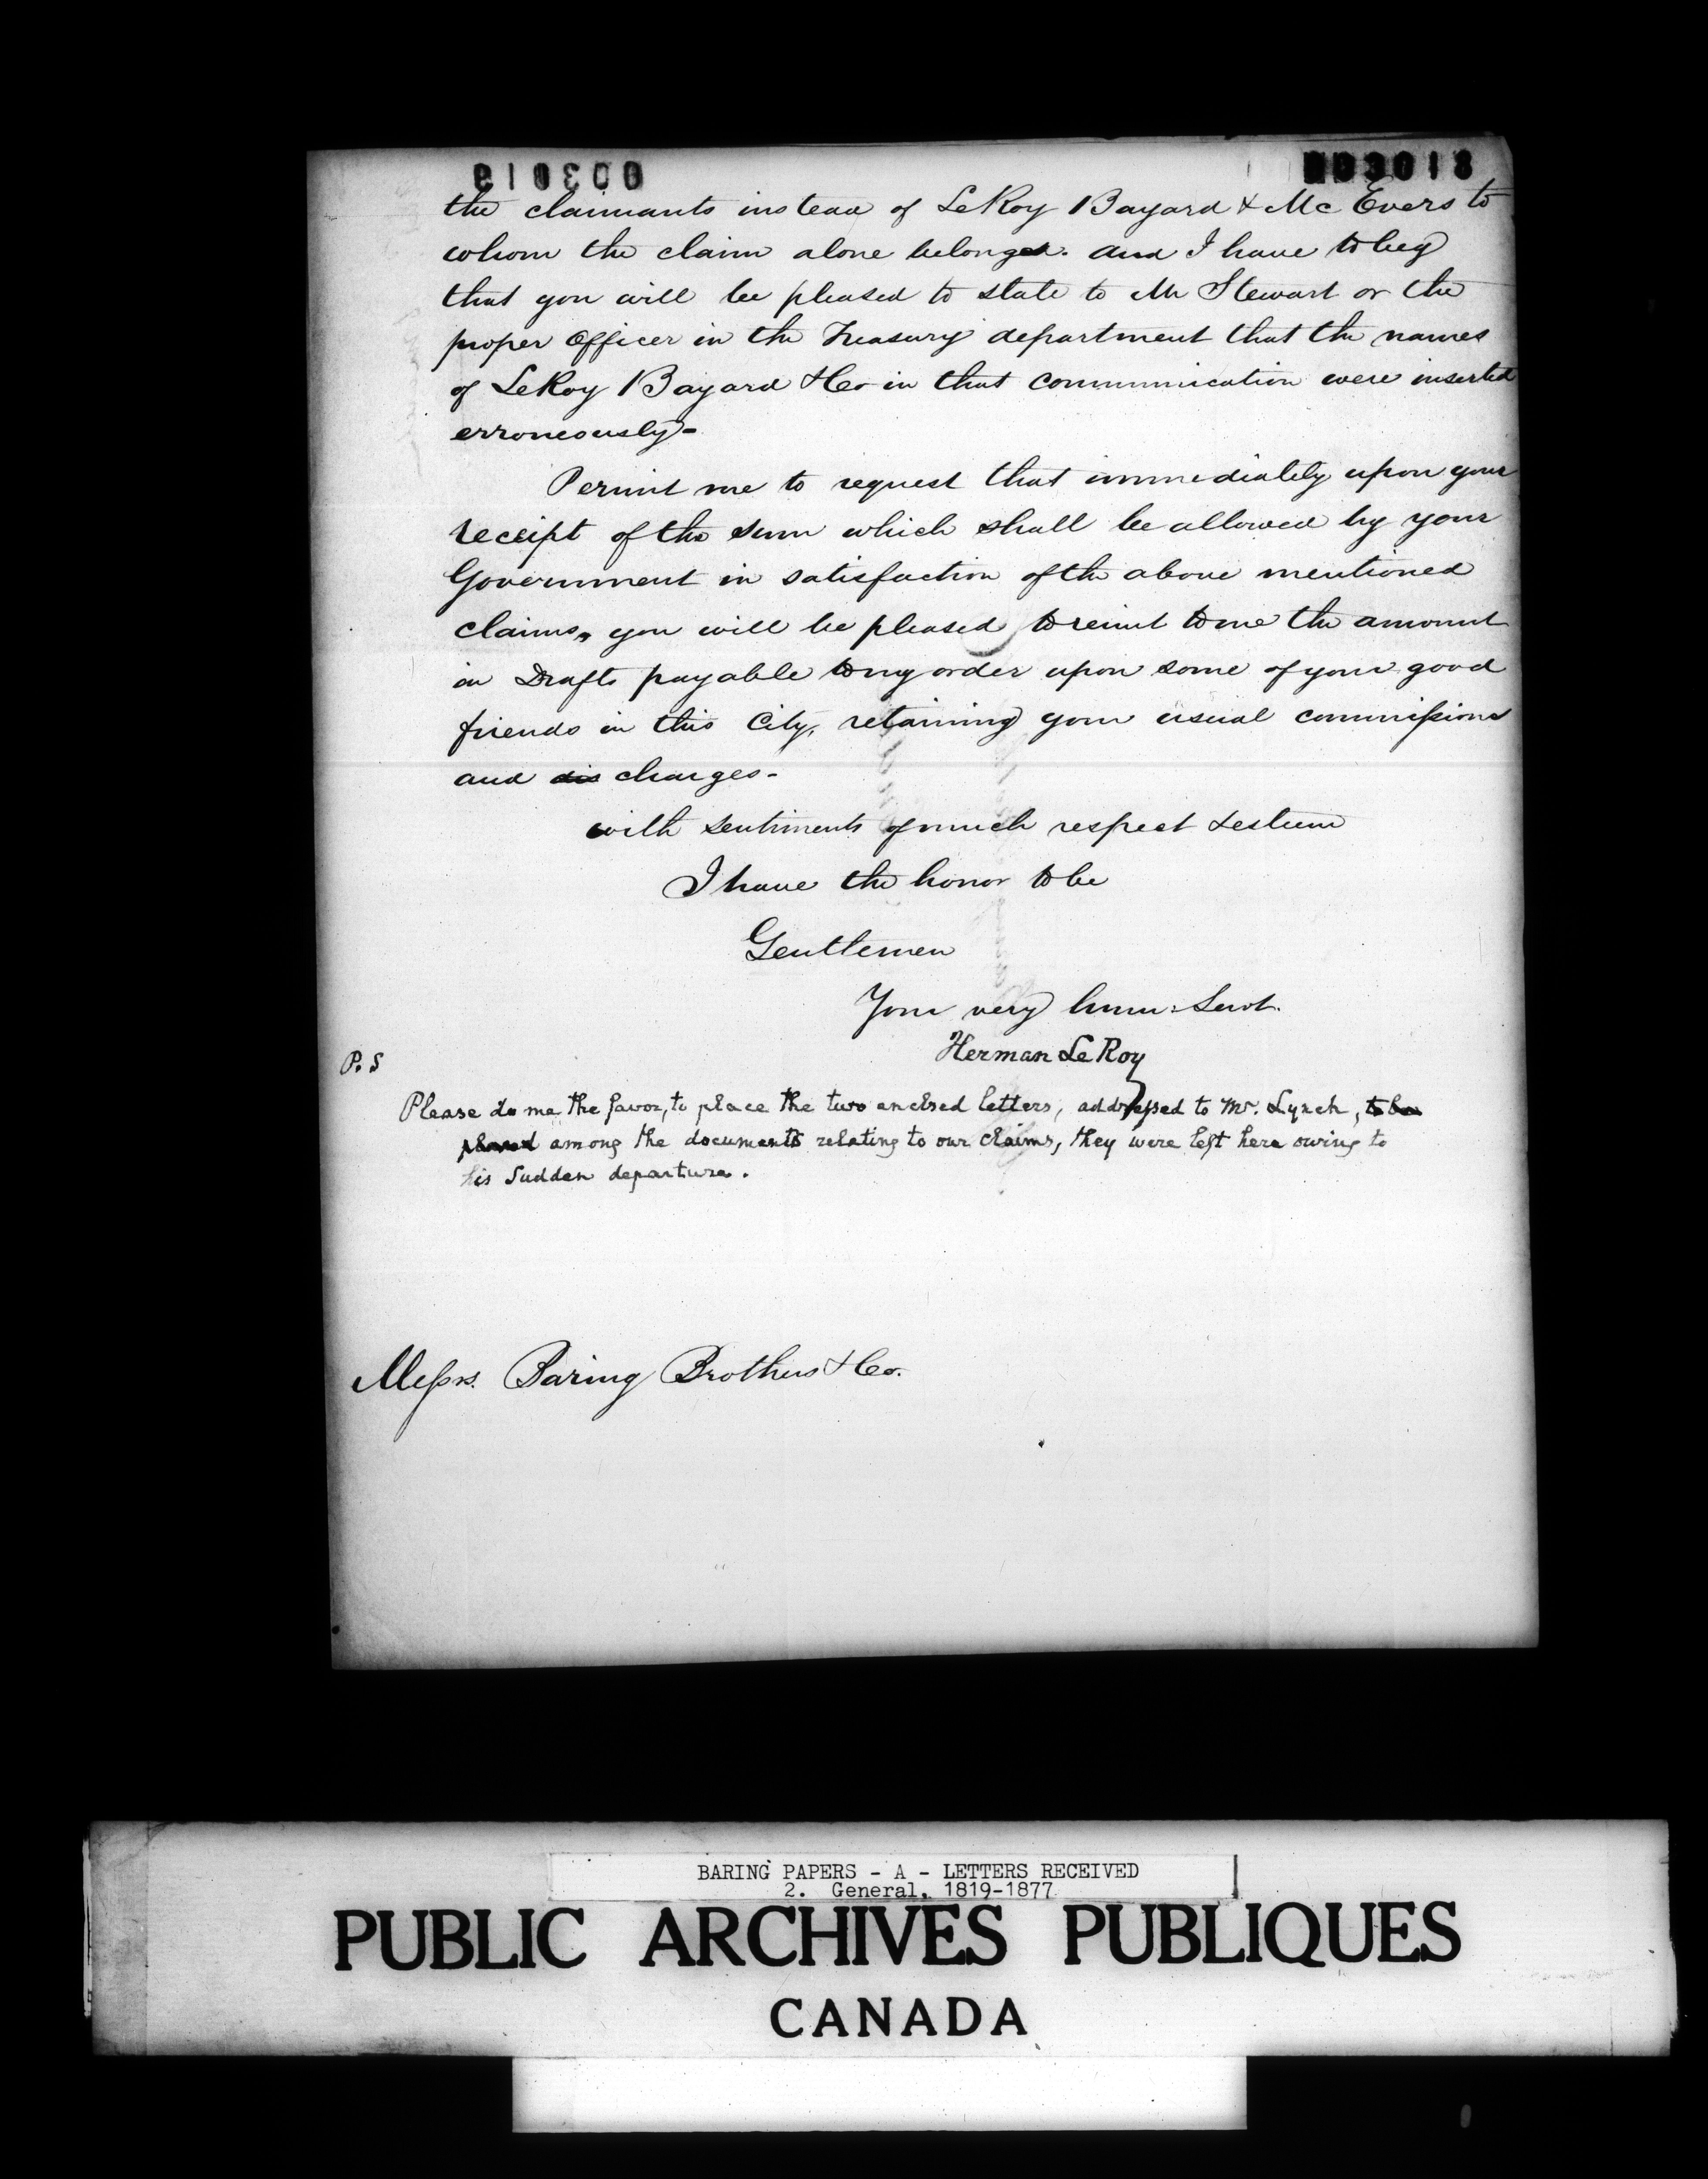 003018
the claimants instead of LeRoy Bayard & McEvers to
whom the claim alone belongs. and I have to beg
that you will be pleased to state to Mr Stewart or the
proper Officer in the Treasury department that the names
of LeRoy Bayard & Co in that communication were inserted
erroneously-
Permit me to request that immediately upon your
receipt of the sum which shall be allowed by your
Government in satisfaction of the above mentioned
claims, you will be pleased to remit to me the amount
in Drafts payable to my order upon some of your good
friends in this City, retaining your usual commissions
and dis charges-
with sentiments of much respect & esteem
I have the honor to be
Gentlemen
Your very hum: Servt.
Herman Le Roy
P.S
Please do me the favor, to place the two enclosed letters, addressed to Mr. Lynch, to be
placed among the documents relating to our claims, they were left here owing to
his Sudden departure.
Messrs. Baring Brothers & Co.
BARING PAPERS - A - LETTERS RECEIVED
2. General, 1819-1877
PUBLIC ARCHIVES PUBLIQUES
CANADA